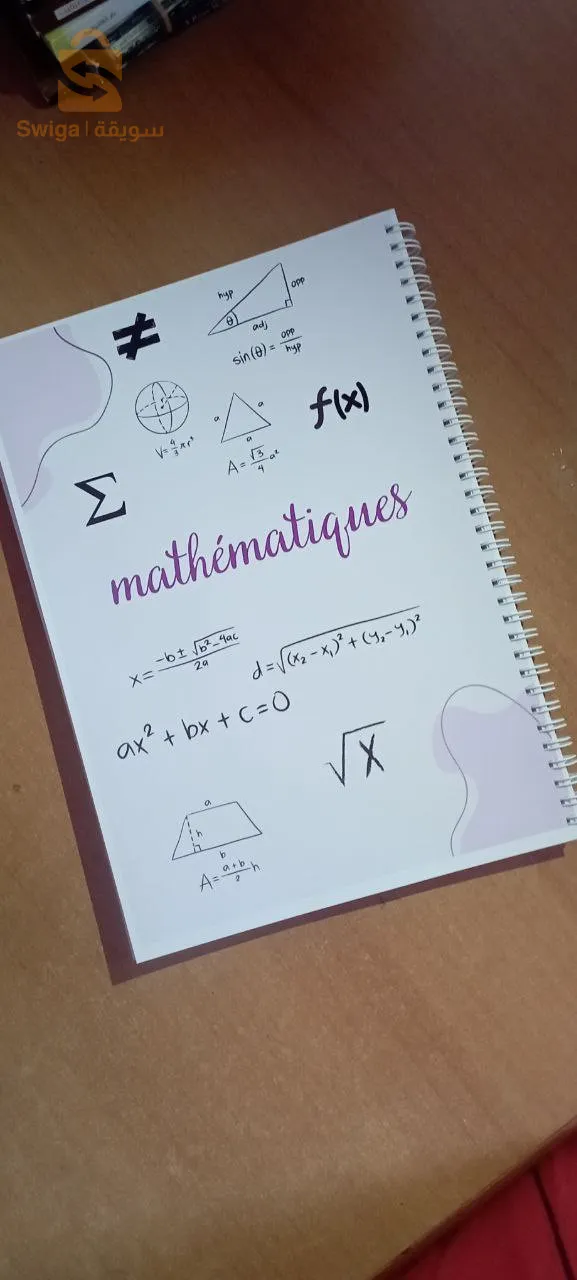 Swiga | سويقة
≠
hyp
opp
θ
adj
sin(θ) = opp/hyp
V = 4/3 πr³
a a
a
A = √3/4 a²
f(x)
Σ
mathématiques
x = -b ± √b² - 4ac / 2a
d = √(x₂ - x₁)² + (y₂ - y₁)²
ax² + bx + c = 0
√x
a
h
b
A = a+b/2 h